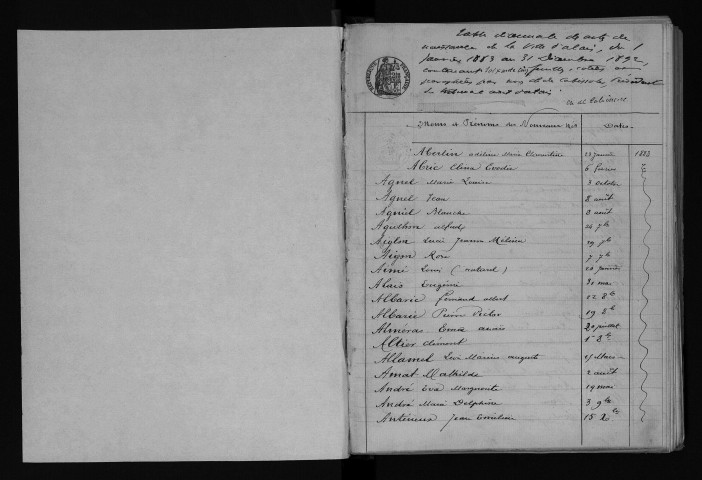 Table décennale des actes de
naissance de la Ville d'alais, du 1
Janvier 1883 au 31 Décembre 1892,
contenant feuillets, cotés et
paraphés par nous Président
du tribunal civil d'alais
Noms & Prénoms des Nouveaux Nés Dates
Abertin Marie 23 Janvier 1883
Abric Elina 6 février
Agnel Marie Louise 3 octobre
Agnel Jean 8 août
Agniel Blanche 8 août
Agulhon alfred 24 7bre
Aiglon Lucie Jeanne Mélina 19 7bre
Aigon Rose 7 7bre
Aimé Louis 20 Janvier
Alais Eugénie 31 mai
Albaric fernand albert 12 8bre
Albaric Pierre Victor 19 8bre
Alméras Emma anaïs 20 juillet
Altier Clément 1er 8bre
Allamel Léon Marius auguste 15 Mars
Amat Mathilde 2 août
André Eva Marguerite 19 mai
André Marie Delphine 3 9bre
Antérieux Jean Emilien 15 Xbre